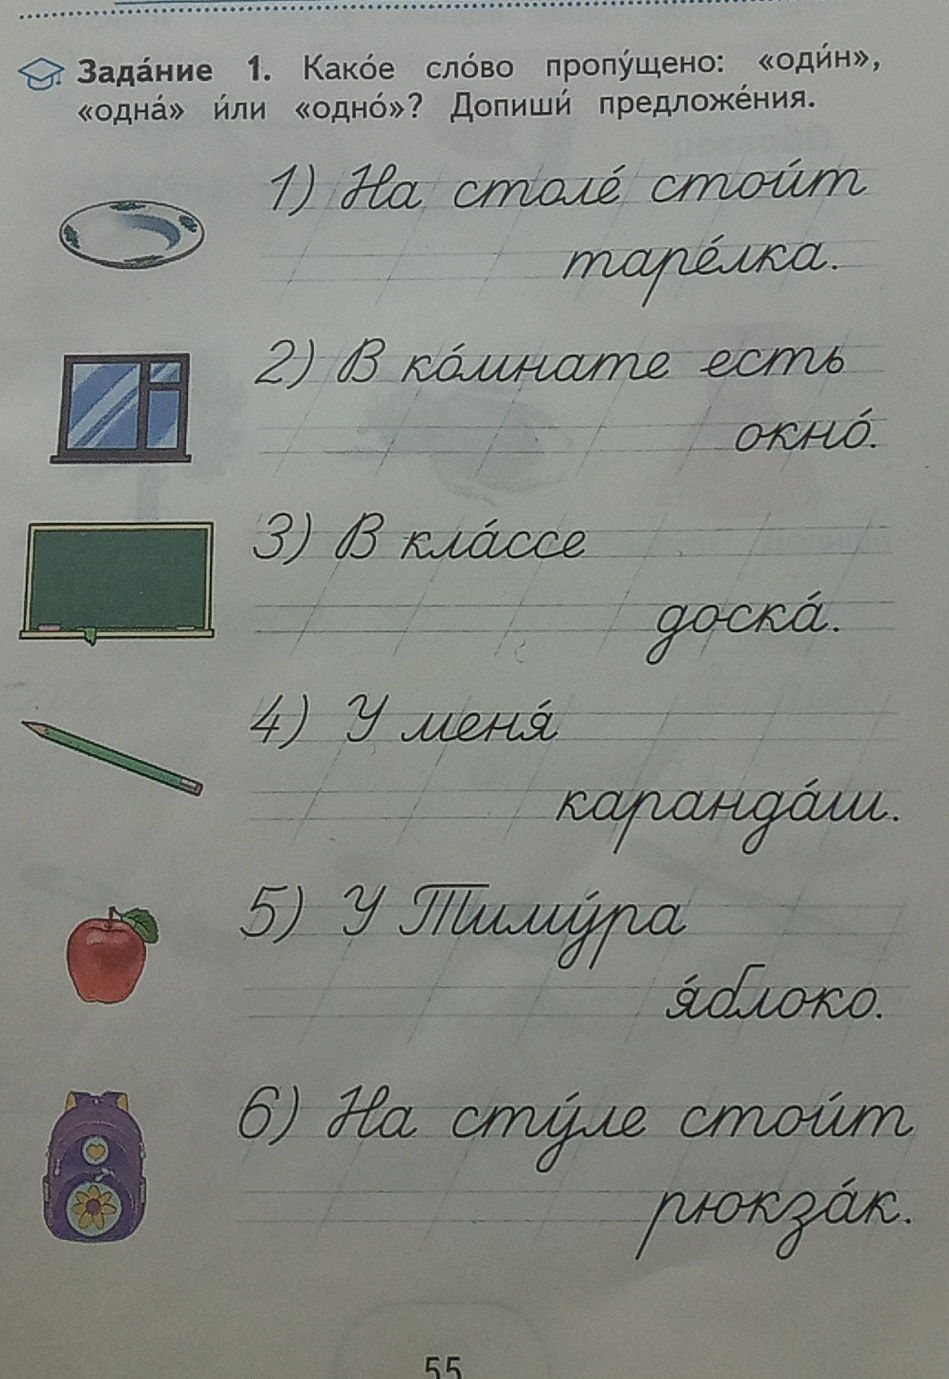 Зада́ние 1. Како́е сло́во пропу́щено: «оди́н»,
«одна́» и́ли «одно́»? Допиши́ предложе́ния.
1) На столе́ стои́т
таре́лка.
2) В ко́мнате есть
окно́.
3) В кла́ссе
доска́.
4) У меня́
каранда́ш.
5) У Тиму́ра
я́блоко.
6) На сту́ле стои́т
рюкза́к.
55